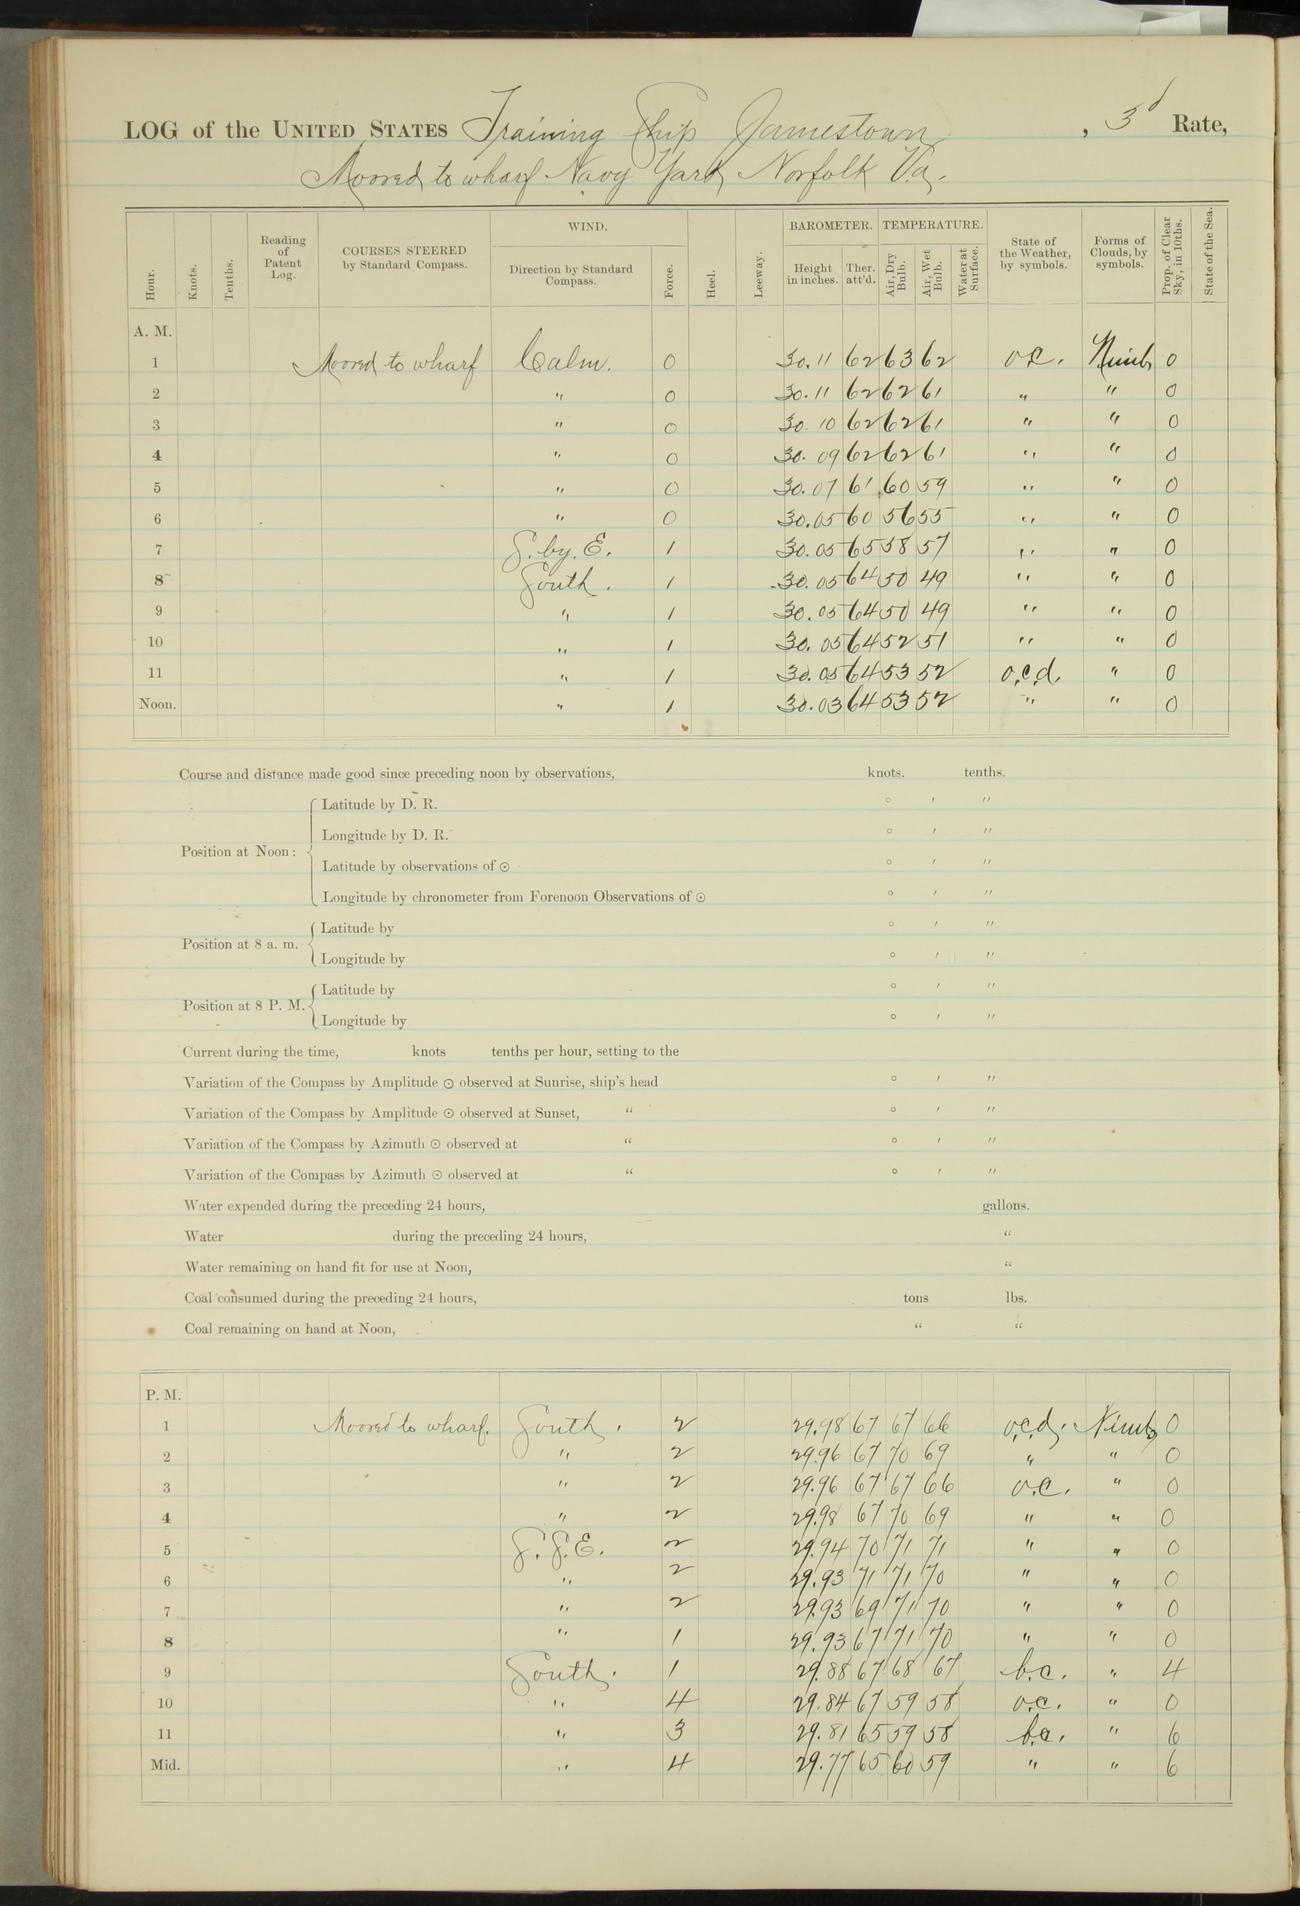 LOG of the UNITED STATES Training Ship Jamestown, 3d Rate,
Moored to wharf Navy Yard, Norfolk Va.
Hour. Knots. Tenths. Reading of Patent Log. COURSES STEERED by Standard Compass. WIND. Direction by Standard Compass. Force. Heel. Leeway. BAROMETER. Height in inches. Ther. att'd. TEMPERATURE. Air, Dry Bulb. Air, Wet Bulb. Water at Surface. State of the Weather, by symbols. Forms of Clouds, by symbols. Prop. of Clear Sky, in 10ths. State of the Sea.
A. M.
1 Moored to wharf Calm. 0 30.11 62 63 62 o.c. Nimb 0
2 " 0 30.11 62 62 61 " " 0
3 " 0 30.10 62 62 61 " " 0
4 " 0 30.09 62 62 61 " " 0
5 " 0 30.07 61 60 59 " " 0
6 " 0 30.05 60 56 55 " " 0
7 S. by. E. 1 30.05 65 58 57 " " 0
8 South. 1 30.05 64 50 49 " " 0
9 " 1 30.05 64 50 49 " " 0
10 " 1 30.05 64 52 51 " " 0
11 " 1 30.05 64 53 52 o.c.d. " 0
Noon. " 1 30.03 64 53 52 " " 0
Course and distance made good since preceding noon by observations, knots. tenths.
Position at Noon:
Latitude by D. R. ° ′ ″
Longitude by D. R. ° ′ ″
Latitude by observations of ⊙ ° ′ ″
Longitude by chronometer from Forenoon Observations of ⊙ ° ′ ″
Position at 8 a. m.
Latitude by ° ′ ″
Longitude by ° ′ ″
Position at 8 P. M.
Latitude by ° ′ ″
Longitude by ° ′ ″
Current during the time, knots tenths per hour, setting to the
Variation of the Compass by Amplitude ⊙ observed at Sunrise, ship's head ° ′ ″
Variation of the Compass by Amplitude ⊙ observed at Sunset, " ° ′ ″
Variation of the Compass by Azimuth ⊙ observed at " ° ′ ″
Variation of the Compass by Azimuth ⊙ observed at " ° ′ ″
Water expended during the preceding 24 hours, gallons.
Water during the preceding 24 hours, "
Water remaining on hand fit for use at Noon, "
Coal consumed during the preceding 24 hours, tons lbs.
Coal remaining on hand at Noon, " "
P. M.
1 Moored to wharf. South. 2 29.98 67 67 66 o.c.d. Nimb 0
2 " 2 29.96 67 70 69 " " 0
3 " 2 29.96 67 67 66 o.c. " 0
4 " 2 29.98 67 70 69 " " 0
5 S. S. E. 2 29.94 70 71 71 " " 0
6 " 2 29.93 71 71 70 " " 0
7 " 2 29.93 69 71 70 " " 0
8 " 1 29.93 67 71 70 " " 0
9 South. 1 29.88 67 68 67 b.c. " 4
10 " 4 29.84 67 59 58 o.c. " 0
11 " 3 29.81 65 59 58 b.c. " 6
Mid. " 4 29.77 65 60 59 " " 6